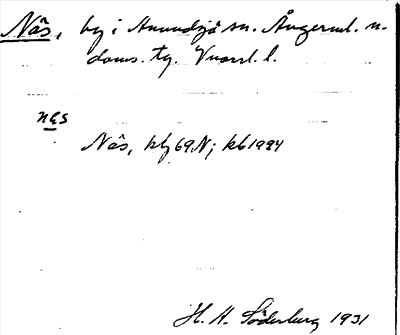 Näs, by i Anundsjö sn. Ångerml. n.
doms. tg. Vnorrl. l.
näs
Näs, kbg 69 N; kb 1924
H. H. Söderburg 1931